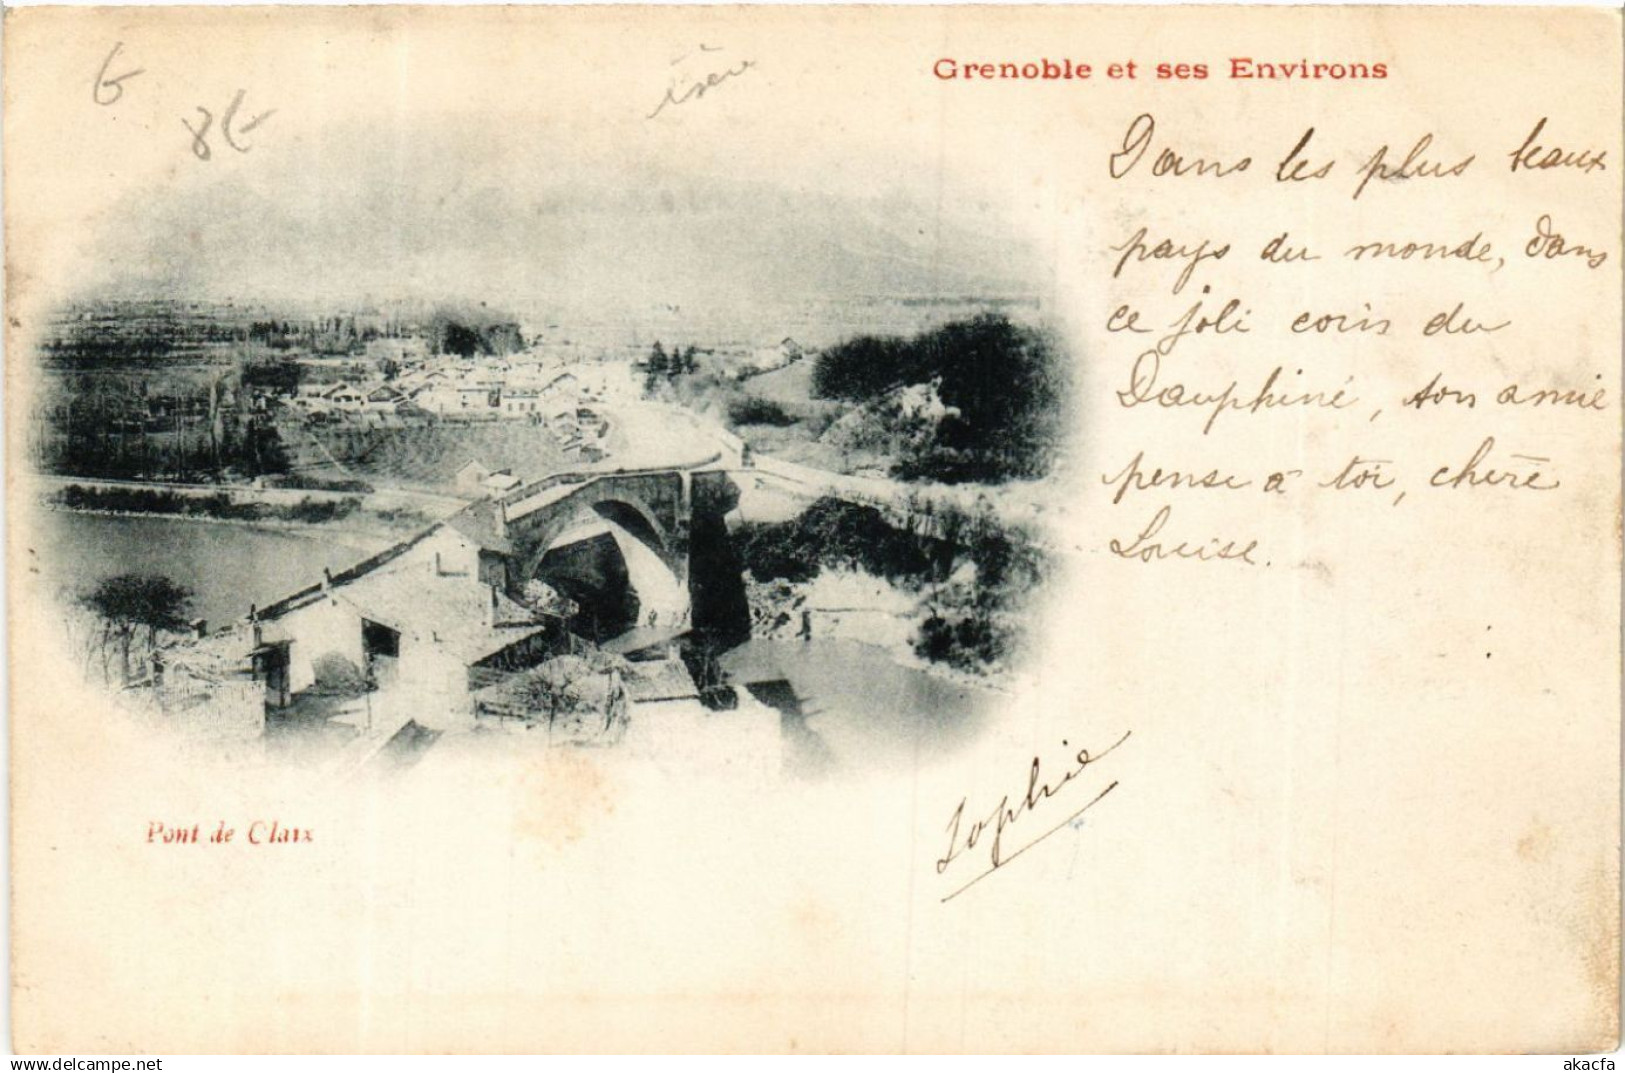 G
8€
isère
Grenoble et ses Environs
Dans les plus beaux
pays du monde, dans
ce joli coin du
Dauphiné, ton amie
pense à toi, chère
Louise.
Sophie
Pont de Claix
akacfa